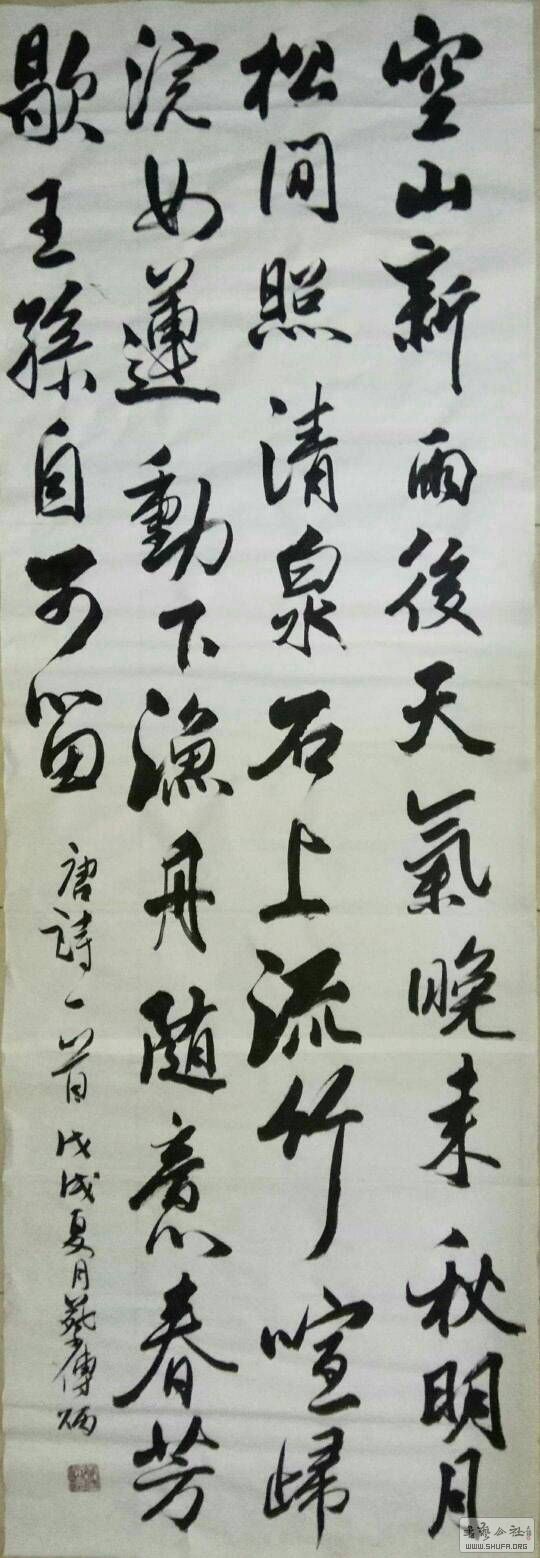 空山新雨後天氣晚来秋明月
松間照清泉石上流竹喧歸
浣女蓮動下漁舟随意春芳
歇王孫自可留
唐詩一首戊戌夏月蔡傳炳
书艺公社
WWW.SHUFA.ORG